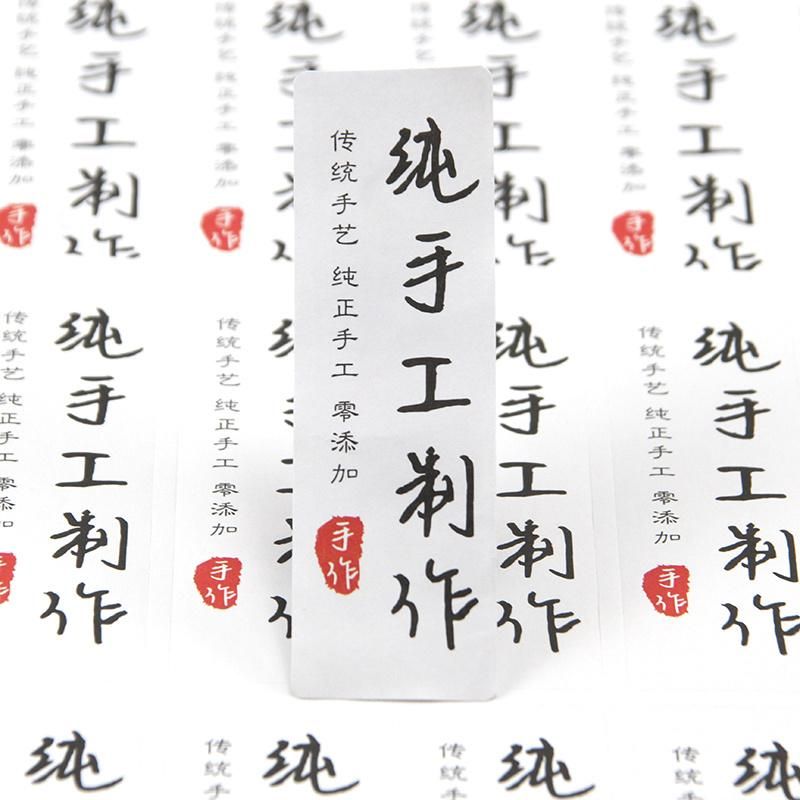 纯手工制作
传统手艺 纯正手工 零添加
手作